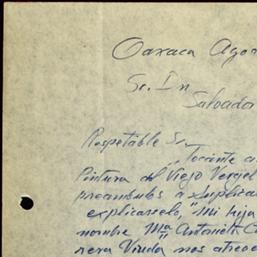 Oaxaca Agos
Sr. In
Salvado
Respetable Sr.
Tocante a
Pintura del Viejo Vergel
preambulos a suplicar
explicarselo, "Mi hija
nombre Ma. Antonieta C
rera Viuda nos atrev